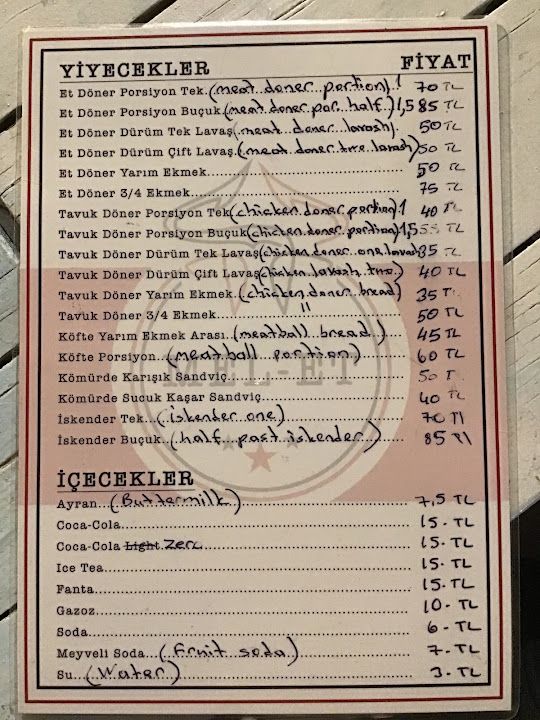 YİYECEKLER FİYAT
Et Döner Porsiyon Tek.(meat doner portion) 1 70 TL
Et Döner Porsiyon Buçuk.(meat doner por. half.) 1,5 85 TL
Et Döner Dürüm Tek Lavaş(meat doner lavash) 50 TL
Et Döner Dürüm Çift Lavaş.(meat doner two lavash) 50 TL
Et Döner Yarım Ekmek 50 TL
Et Döner 3/4 Ekmek 75 TL
Tavuk Döner Porsiyon Tek(chicken doner portion) 1 40 TL
Tavuk Döner Porsiyon Buçuk.(chicken doner portion) 1,5
Tavuk Döner Dürüm Tek Lavaş(chicken doner one lavash) 35 TL
Tavuk Döner Dürüm Çift Lavaş(chicken lavash two) 40 TL
Tavuk Döner Yarım Ekmek.(chicken doner bread) 35 TL
Tavuk Döner 3/4 Ekmek " 50 TL
Köfte Yarım Ekmek Arası.(meatball bread) 45 TL
Köfte Porsiyon (meatball portion) 60 TL
Kömürde Karışık Sandviç 50 TL
Kömürde Sucuk Kaşar Sandviç 40 TL
İskender Tek (iskender one) 70 Tl
İskender Buçuk (half past iskender) 85 Tl
MEL-ET
İÇECEKLER
Ayran (Buttermilk) 7,5 TL
Coca-Cola 15.- TL
Coca-Cola Light Zero 15.- TL
Ice Tea 15.- TL
Fanta 15.- TL
Gazoz 10.- TL
Soda 6.- TL
Meyveli Soda (fruit soda) 7.- TL
Su (Water) 3.- TL